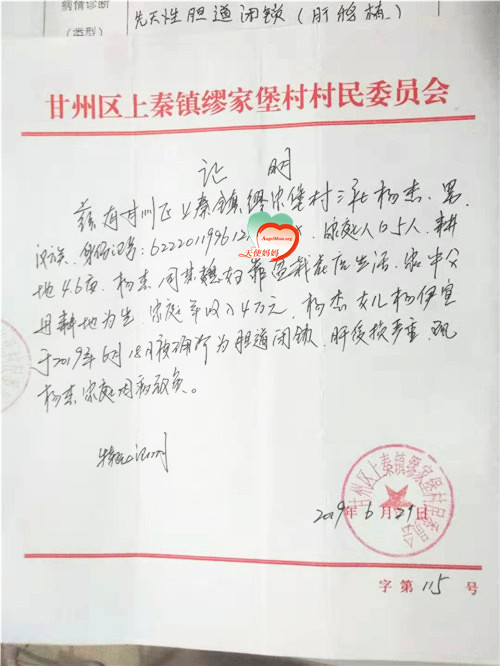 病情诊断
(类型)
先天性胆道闭锁(肝移植)
甘州区上秦镇缪家堡村村民委员会
证明
兹有甘州区上秦镇缪家堡村三社杨杰、男、
汉族、身份证号:622201199612、家庭人口5人、耕
地4.6亩、杨杰同其媳妇靠盆栽花店生活、家中父
母耕地为生、家庭年收入4万元、杨杰女儿杨伊宣
于2019年6月18日被确诊为胆道闭锁、肝后损严重、现
杨杰家庭因病致贫。
特此证明
2019年6月29日
甘州区上秦镇缪家堡村民委员会
字第115号
AngelMom.org
天使妈妈